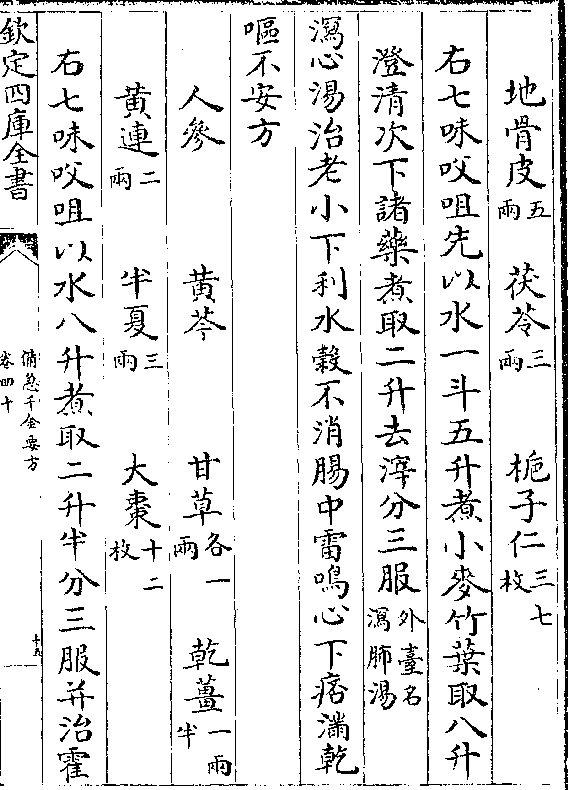 地骨皮五兩　茯苓三兩　梔子仁三七枚
右七味㕮咀先以水一斗五升煮小麥竹葉取八升
澄清次下諸藥煮取二升去滓分三服外臺名瀉肺湯
瀉心湯治老小下利水榖不消腸中雷鳴心下痞滿乾
嘔不安方
人參　黃芩　甘草各一兩　乾薑一兩半
黃連二兩　半夏三兩　大棗十二枚
右七味㕮咀以水八升煮取二升半分三服并治霍
欽定四庫全書
備急千金要方
卷四十